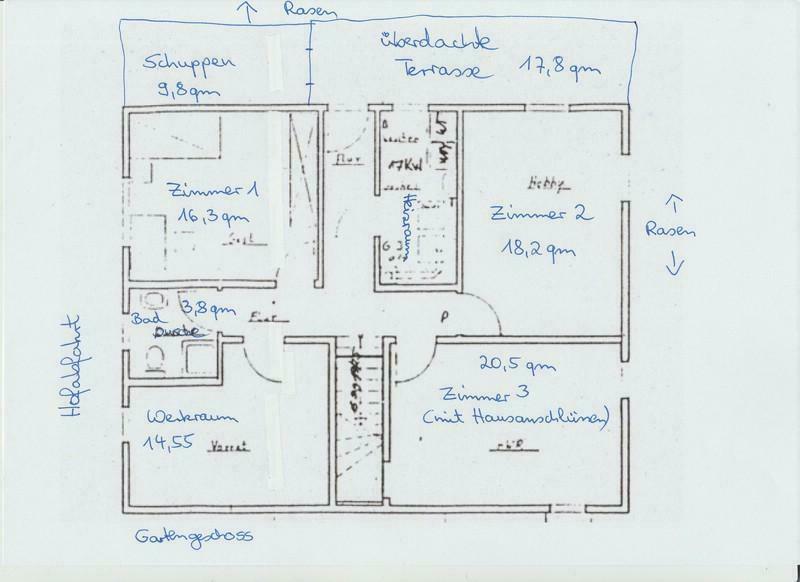 Rasen
Schuppen
9,8qm
überdachte
Terrasse 17,8 qm
Flur
17KW
Heizraum
Zimmer 1
16,3qm
Hobby
Zimmer 2
18,2 qm
Rasen
Hofabfahrt
3,8qm
Bad
Dusche
Flur
P
20,5 qm
Zimmer 3
(mit Hausanschlüssen)
Werkraum
14,55
Vorrat
Gartengeschoss